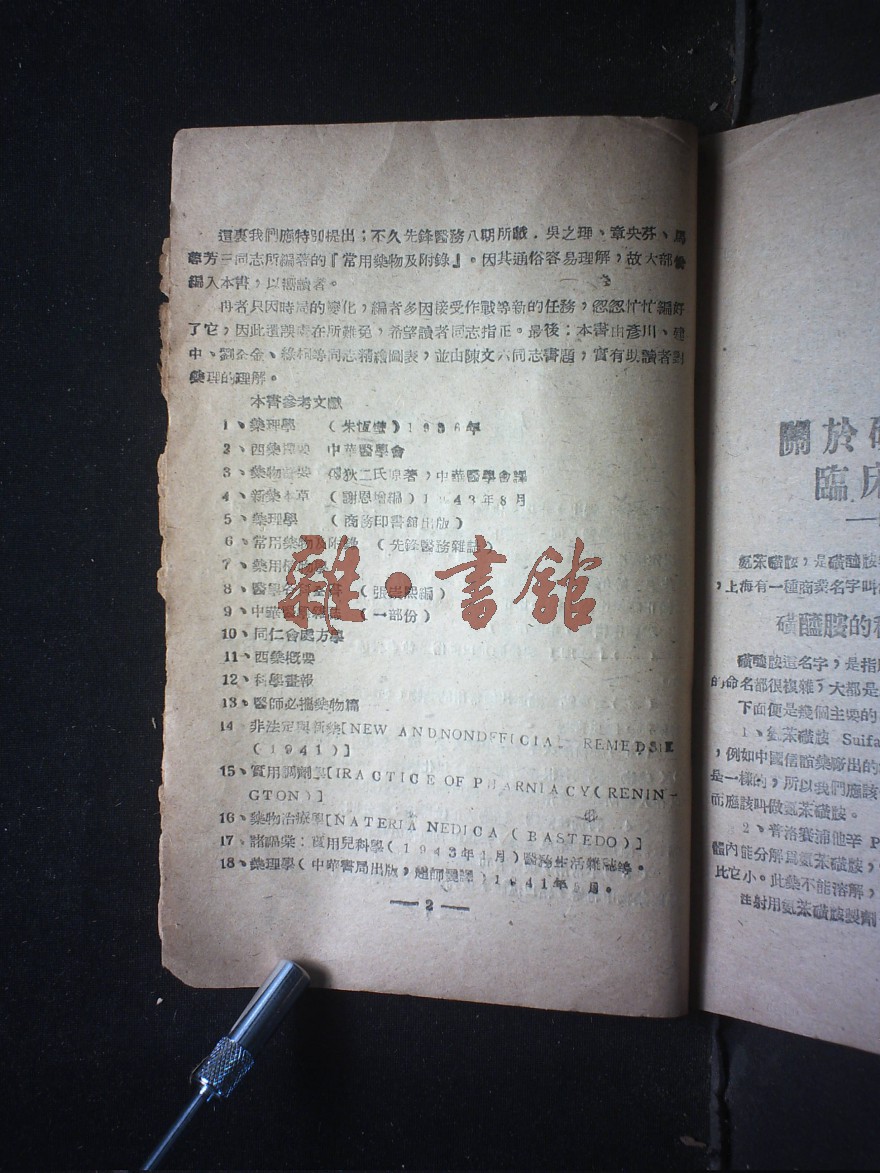 這裏我們應特別提出；不久先鋒醫務八期所載．吳之理、章央芬、
芳三同志所編著的『常用藥物及附錄』。因其通俗容易理解，故大部
編入本書，以餉讀者。
再者只因時局的變化，編者多因接受作戰等新的任務，忽忽忙忙編好
了它，因此遺誤在所難免，希望讀者同志指正。最後：本書由彥川、建
中、劉金、等同志精繪圖表，並由陳文六同志書題，實有助讀者對
藥理的理解。
本書參考文獻
1、藥理學 （朱恆璧）1936年
2、西藥 中華醫學會
3、藥物 狄二氏原著，中華醫學會譯
4、新藥本草 （謝恩增編）1943年8月
5、藥理學 （商務印書館出版）
6、常用藥物及附錄 （先鋒醫務雜誌）
7、藥用
8、醫學 （張崇熙編）
9、中華醫學雜誌 （一部份）
10、同仁會處方學
11、西藥概要
12、科學畫報
13、醫師必攜藥物篇
14 非法定與新藥[NEW ANDNONDFFICIAL REMEDSIE
（1941）]
15、實用調劑學[IRACTICE OF PHARNIACY(RENIN-
GTON)]
16、藥物治療學[NATERIA NEDICA（BASTEDO）]
17、諸福棠：實用兒科學（1943年1月）醫務生活雜誌等。
18、藥理學（中華書局出版，趙師震譯）1941年 月。
—2—
雜·書館
關於
臨床
氨苯磺胺，是磺醯胺
，上海有一種商業名字叫
磺醯胺的
磺醯胺這名字，是指
的命名都很複雜，大都是
下面便是幾個主要的
1、氨苯磺胺 Suifa
，例如中國信誼藥廠出的
是一樣的，所以我們應該
而應該叫做氨苯磺胺。
2、普洛賽浦他辛 P
體內能分解爲氨苯磺胺，
比它小。此藥不能溶解，
注射用氨苯磺胺製劑